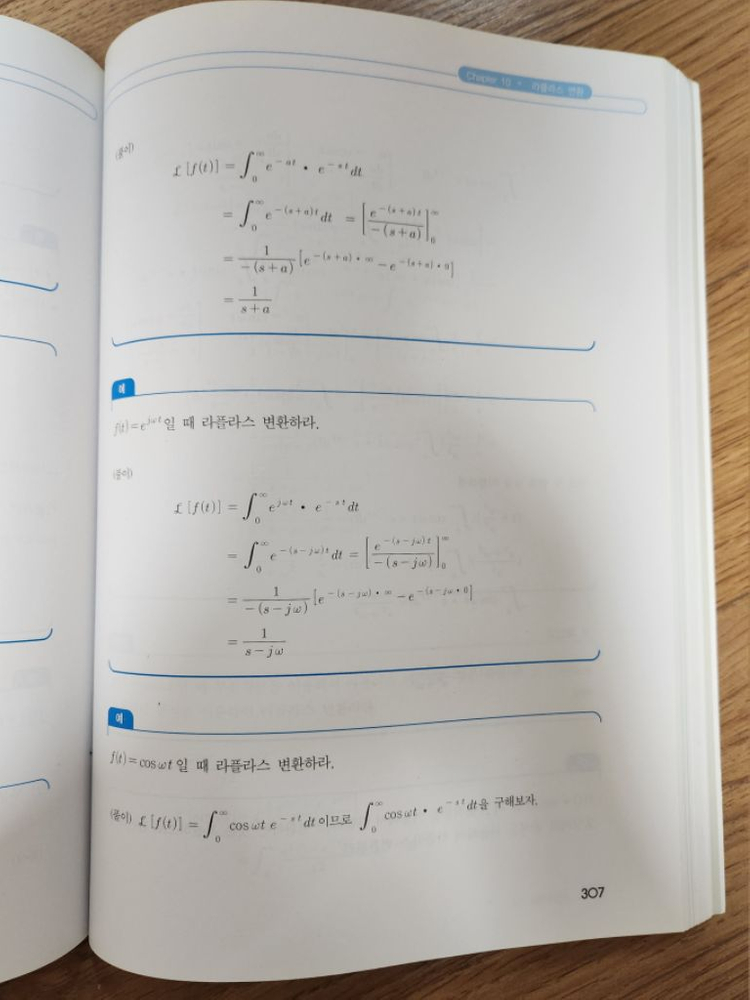 Chapter 10 • 라플라스 변환
(풀이)
£ [f(t)] = ∫₀^∞ e^{-at} • e^{-st} dt
= ∫₀^∞ e^{-(s+a)t} dt = [e^{-(s+a)t} / -(s+a)]₀^∞
= 1 / -(s+a) [e^{-(s+a)•∞} - e^{-(s+a)•0}]
= 1 / s+a
예
f(t) = e^{jωt} 일 때 라플라스 변환하라.
(풀이)
£ [f(t)] = ∫₀^∞ e^{jωt} • e^{-st} dt
= ∫₀^∞ e^{-(s-jω)t} dt = [e^{-(s-jω)t} / -(s-jω)]₀^∞
= 1 / -(s-jω) [e^{-(s-jω)•∞} - e^{-(s-jω•0)}]
= 1 / s-jω
예
f(t) = cos ωt 일 때 라플라스 변환하라.
(풀이) £ [f(t)] = ∫₀^∞ cos ωt e^{-st} dt 이므로 ∫₀^∞ cos ωt • e^{-st} dt을 구해보자.
307